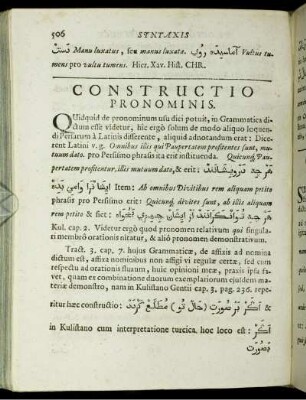 506 SYNTAXIS
Manu luxatus, seu manus luxatæ. آماسیده روی Vultus tu-
mens pro vultu tumens. Hier. Xav. Hist. CHR.
CONSTRUCTIO
PRONOMINIS.
Quidquid de pronominum usu dici potuit, in Grammatica di-
ctum esse videtur, hic ergò solum de modo aliquo loquen-
di Persarum à Latinis differente, aliquid adnotandum erat: Dice-
rent Latini v. g. Omnibus illis qui Paupertatem præsentes sunt, mu-
tuum dato. pro Persismo phrasis ita erit instituenda. Quicunq; Pau-
pertatem præsentent, illis mutuum data, & erit: هر چه درویشانند
ایشانرا وامی بده Item: Ab omnibus Divitibus rem aliquam petito
phrasis pro Persismo erit: Quicunq; divites sunt, ab illis aliquam
rem petito & fiet: هر چه توانگرانند از ایشان چیزی بخواه
Kul. cap. 2. Videtur ergò quod pronomen relativum qui singula-
ri membro orationis nitatur, & aliò pronomen demonstrativum.
Tract. 3. cap. 7. hujus Grammaticæ, de affixis ad nomina
dictum est, affixa nominibus non affigi vi regulæ certæ, sed cum
respectu ad orationis fluxum, huic opinioni meæ, praxis ipsa fa-
vet, quam ex combinatione duorum exemplariorum ejusdem ma-
teriæ demonstro, nam in Kulistano Gentii cap. 3. pag. 236. repe-
ritur hæc constructio: اگر بر صورت (حال تو) مطلع گردند &
in Kulistano cum interpretatione turcica hoc loco est: اگر
بصورت